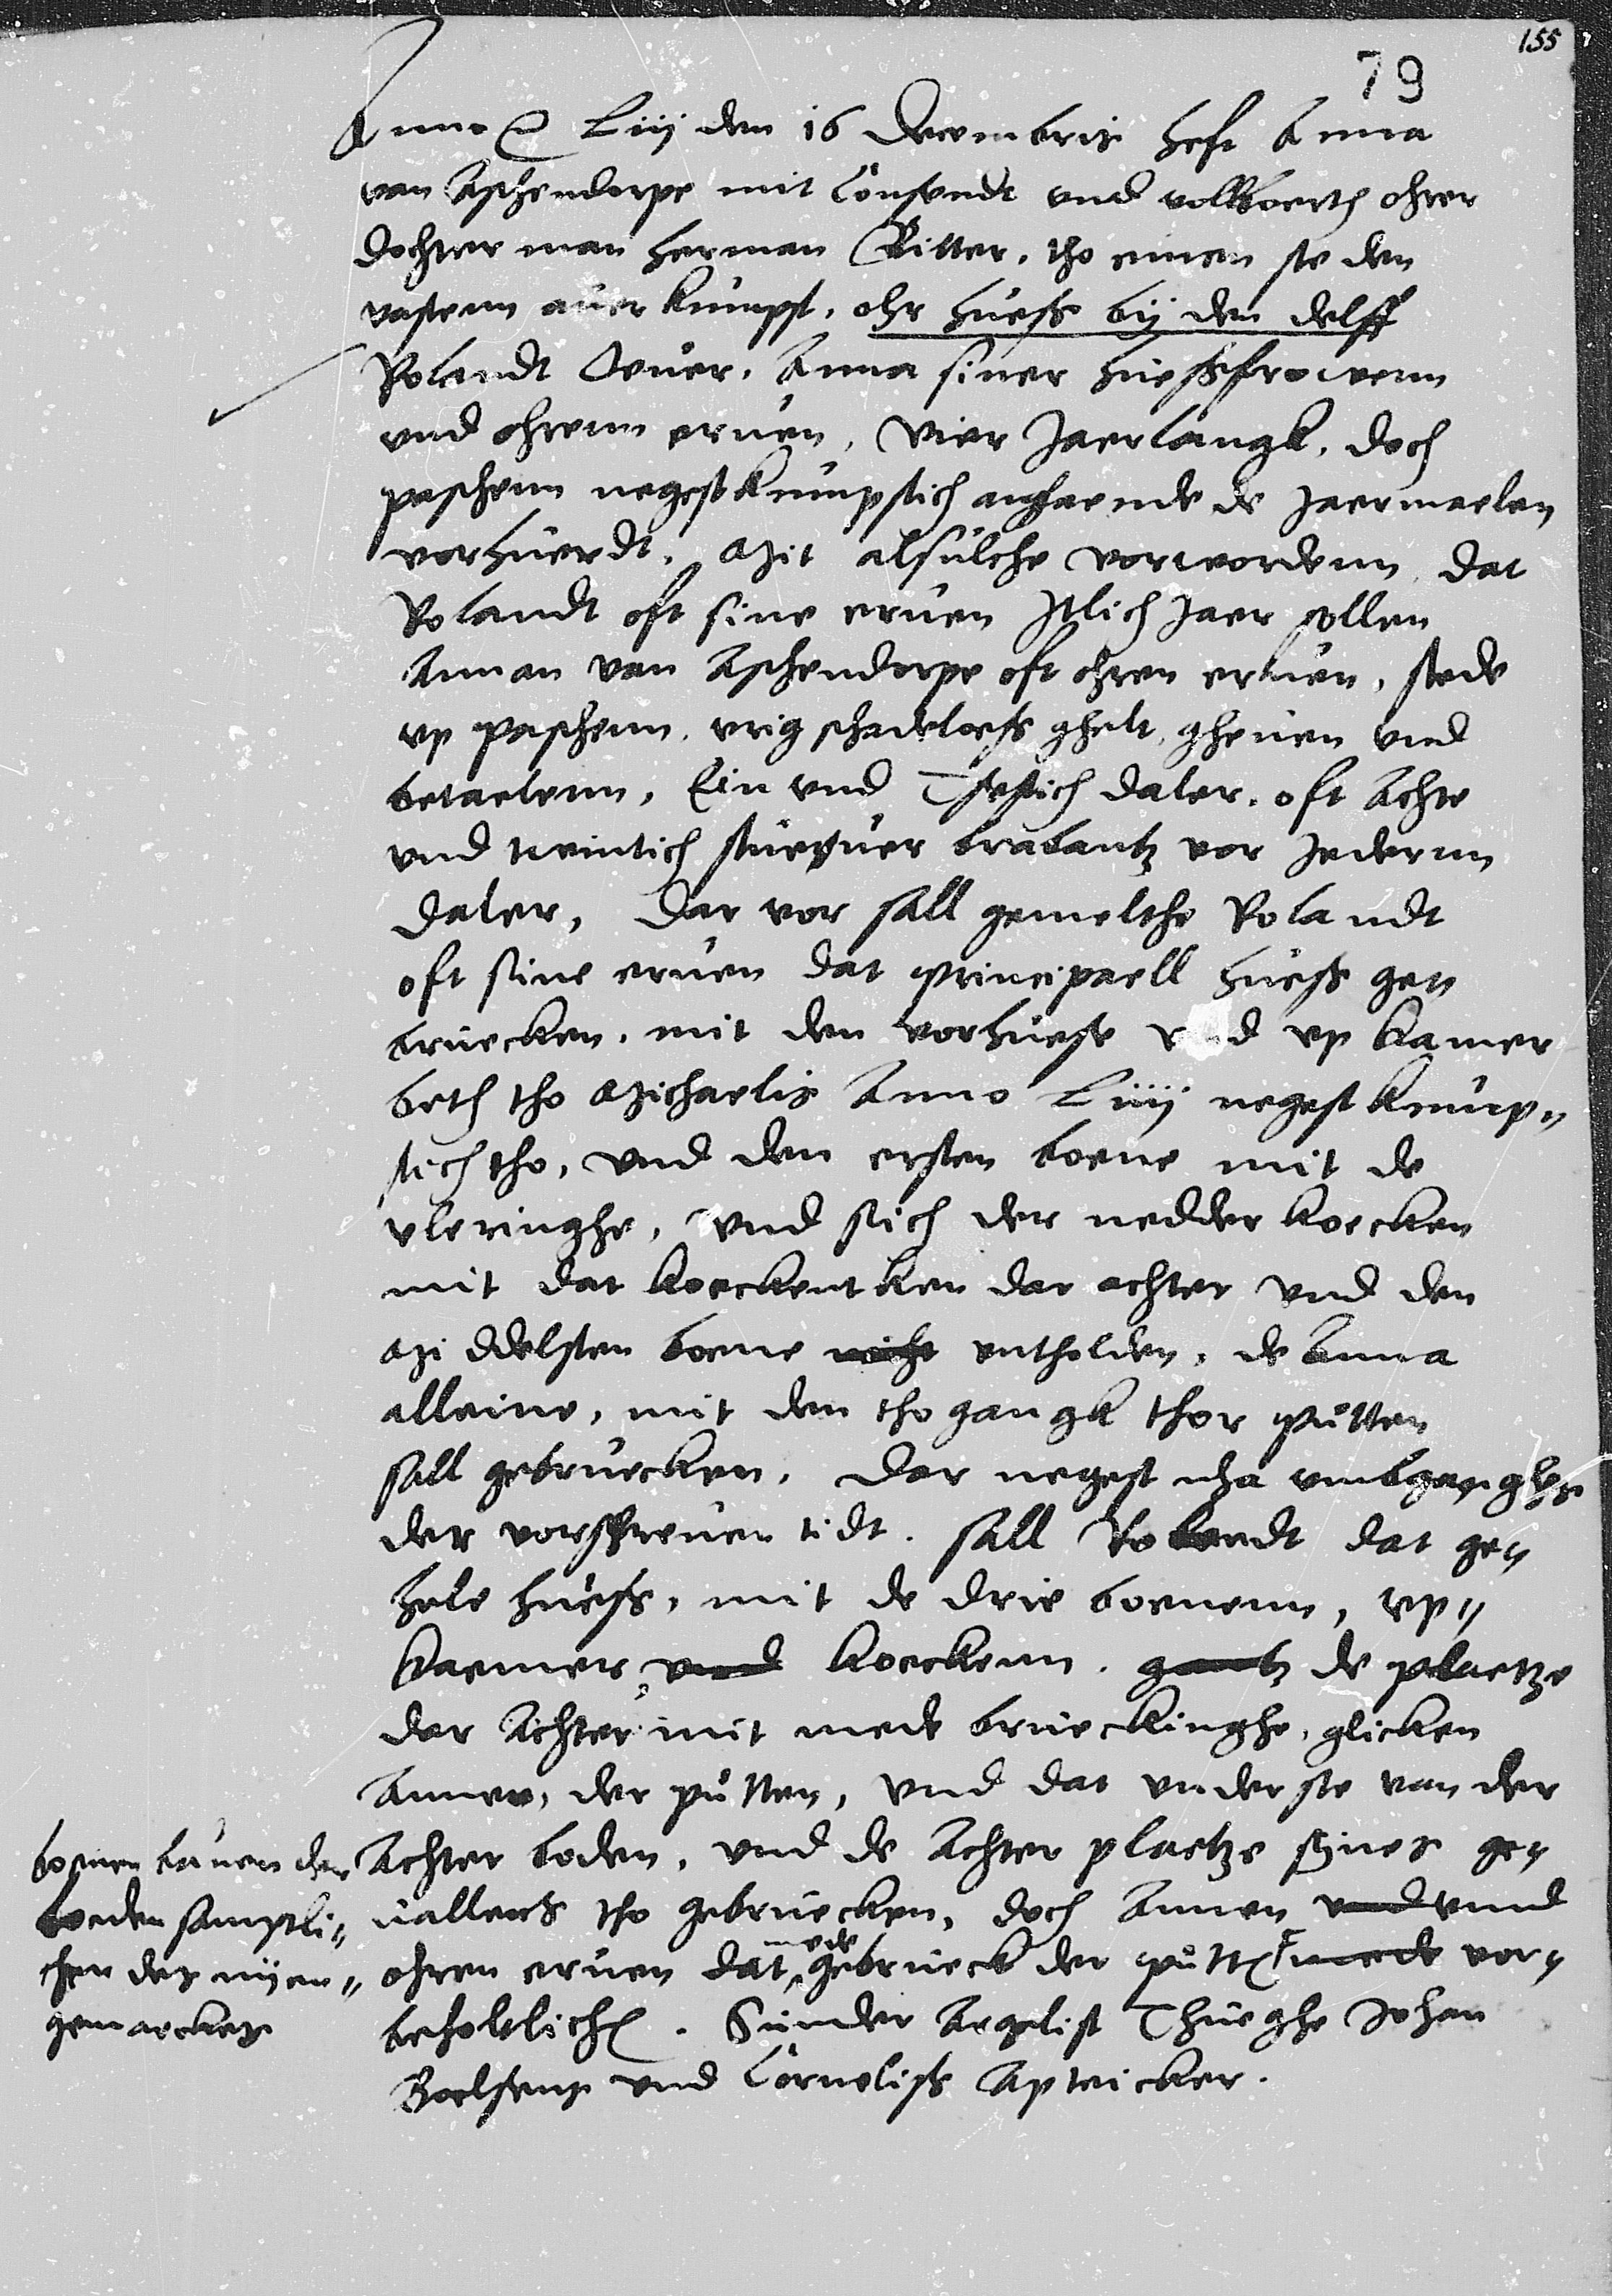 155
79
Anno &c Liij den 16 Decembris heft Anna
van Aschendorpe mit Consendt vnd vollboerth ohrer
dochter man Herman Ritter, tho einen ste den
vastenn auerkumpst, ohr huess bij den delff
Rolandt Anna siner huessfrowenn
vnd ohrenn eruen, Vier Jaerlangk, doch
paschenn negestkumpstich anghaende de Jaermaelen
vorhuerdt, Mit alsulche vorwordenn, dat
Rolandt oft sine eruen Jtlich Jaer sollen
Annan van Aschendorpe oft ohren eruen, stede
vp paschenn, vrig schadeloess ghelt, gheuen vnd
betaelenn, Ein vnd Tsestich daler, oft Achte
vnd twintich stueuer brabantz vor Jedernn
daler, Dar vor sall gemelthe Rolandt
oft sine eruen dat principaell huess ge„
bruecken, mit den vorhuese vnd vp kamer
beth tho Michaelis Anno Liiij negest kump„
stich tho, vnd den ersten boene mit de
vleringhe, vnd sich der nedder koecken
mit dat koeckentken dar achter vnd den
Middelsten boene nicht entholden, de Anna
alleine, mit den tho gangk thor pütten
sall gebruecken, Dar negest nha vmbganghe
der vorschreuen tidt, sall Rolandt dat ge„
hele huess, mit de drie boenenn, vp„
kaemer, vnd koeckenn, gantz de plaetze
dar Achter mit mede brueckinghe, glicken
Annen, der pütten, vnd dat vnderste van der
Achter boden, vnd de Achter plaetze sines ge„
uallens tho gebruecken, doch Annen vnd vnnd
ohren eruen dat mede gebrueck der pütten mede vor„
beholtlich. Sunder Argelist Thueghe Johan
Boelsens vnd Corneliss Apteicker.
boenen bauen der
boeden samptli„
chen des nijen„
gemarckes